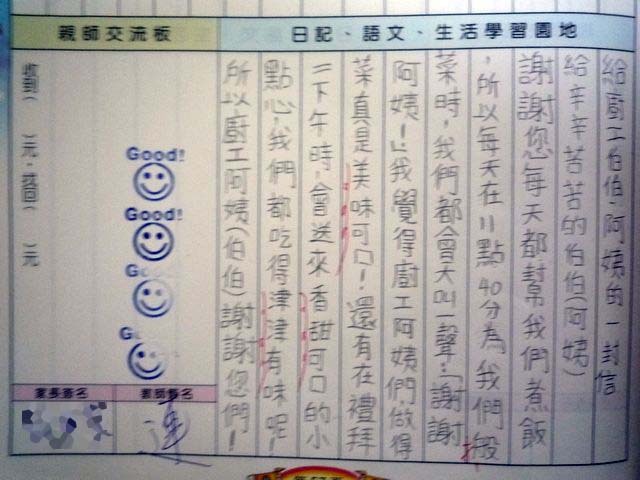 日記、語文、生活學習園地
給廚工伯伯、阿姨的一封信
給辛辛苦苦的伯伯(阿姨)
謝謝您每天都幫我們煮飯
,所以每天在11點40分為我們般
菜時,我們都會大叫一聲:「謝謝
阿姨!」我覺得廚工阿姨們,做得
菜真是美味可口!還有在禮拜
二下午時,會送來香甜可口的小
點心,我們都吃得津津有味呢!
所以廚工阿姨(伯伯)謝謝您們!
親師交流板
Good!
Good!
Good
G
收到( )元,找回( )元
教師簽名
家長簽名